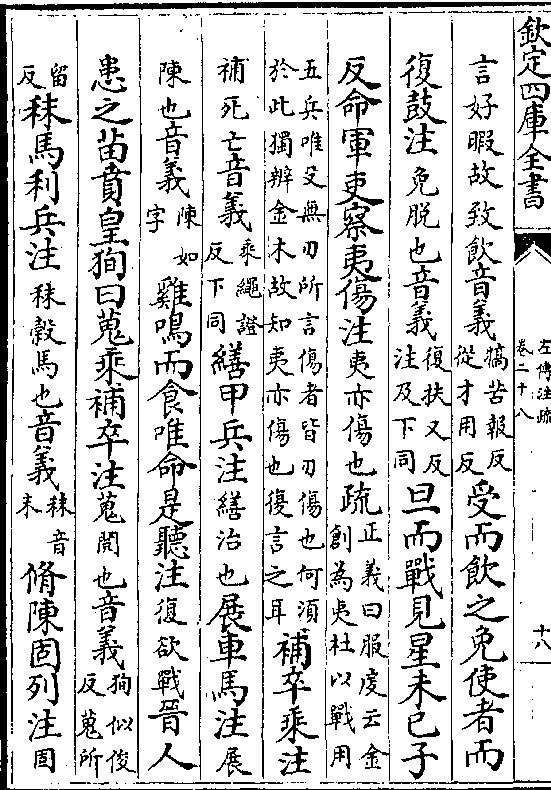 欽定四庫全書
左傳注疏
卷二十八
十八
言好暇故致飲音義犒苦報反從才用反受而飲之免使者而
復鼓注免脫也音義復扶又反注及下同旦而戰見星未已子
反命軍吏察夷傷注夷亦傷也疏正義曰服虔云金創為夷杜以戰用
五兵唯殳無刃所言傷者皆刃傷也何須於此獨辨金木故知夷亦傷也復言之耳補卒乘注
補死亡音義乘繩證反下同繕甲兵注繕治也展車馬注展
陳也音義陳如字雞鳴而食唯命是聽注復欲戰晉人
患之苗賁皇狥曰蒐乘補卒注蒐閱也音義狥似俊反蒐所
留反秣馬利兵注秣榖馬也音義秣音末脩陳固列注固